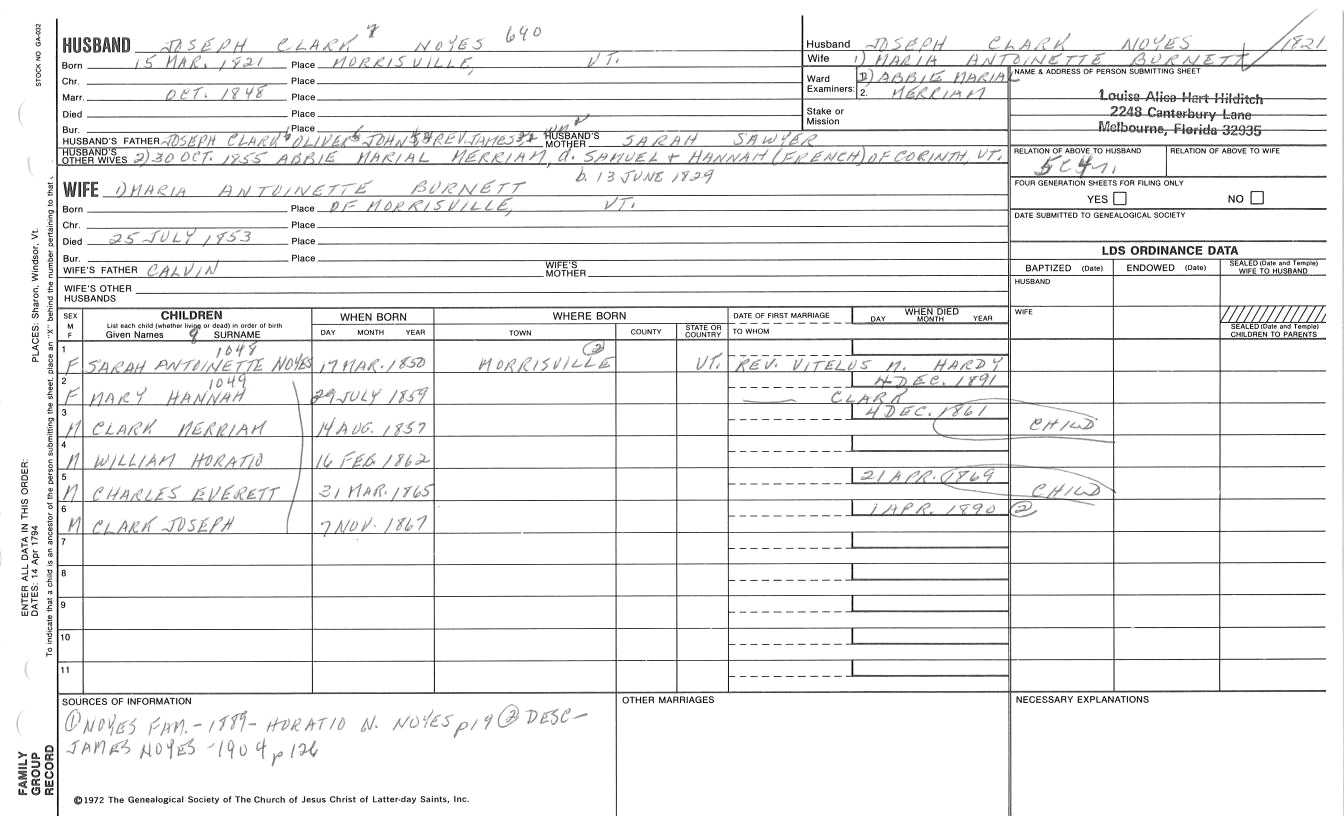 STOCK NO GA-032
HUSBAND JOSEPH CLARK 7 NOYES 640
Born 15 MAR. 1821 Place MORRISVILLE, VT.
Chr. Place
Marr. OCT. 1848 Place
Died Place
Bur. Place
HUSBAND'S FATHER JOSEPH CLARK 6 OLIVER 5 JOHN REV. JAMES HUSBAND'S MOTHER SARAH SAWYER
HUSBAND'S OTHER WIVES 2) 30 OCT. 1855 ABBIE MARIAL MERRIAM, d. SAMUEL + HANNAH (FRENCH) OF CORINTH, VT.
b. 13 JUNE 1829
WIFE 1) MARIA ANTOINETTE BURNETT
Born Place OF MORRISVILLE, VT.
Chr. Place
Died 25 JULY 1853 Place
Bur. Place
WIFE'S FATHER CALVIN WIFE'S MOTHER
WIFE'S OTHER HUSBANDS
Husband JOSEPH CLARK NOYES /1821
Wife 1) MARIA ANTOINETTE BURNETT
Ward 2) ABBIE MARIAL
Examiners: 2. MERRIAM
Stake or Mission
NAME & ADDRESS OF PERSON SUBMITTING SHEET
Louise Alice Hart Hilditch
2248 Canterbury Lane
Melbourne, Florida 32935
RELATION OF ABOVE TO HUSBAND RELATION OF ABOVE TO WIFE
5C4r.
FOUR GENERATION SHEETS FOR FILING ONLY
YES NO
DATE SUBMITTED TO GENEALOGICAL SOCIETY
LDS ORDINANCE DATA
BAPTIZED (Date) ENDOWED (Date) SEALED (Date and Temple) WIFE TO HUSBAND
HUSBAND
WIFE
SEALED (Date and Temple) CHILDREN TO PARENTS
SEX M F CHILDREN WHEN BORN WHERE BORN DATE OF FIRST MARRIAGE WHEN DIED
List each child (whether living or dead) in order of birth
Given Names 8 SURNAME DAY MONTH YEAR TOWN COUNTY STATE OR COUNTRY TO WHOM DAY MONTH YEAR
1 1048 2
F SARAH ANTOINETTE NOYES 17 MAR. 1850 MORRISVILLE VT. REV. VITELUS M. HARDY
2 1049 4 DEC. 1891
F MARY HANNAH 29 JULY 1859 CLARK
3 4 DEC. 1861
M CLARK MERRIAM 14 AUG. 1857 CHILD
4
M WILLIAM HORATIO 16 FEB. 1862
5 21 APR. 1869
M CHARLES EVERETT 31 MAR. 1865 CHILD
6 1 APR. 1890 2
M CLARK JOSEPH 7 NOV. 1867
7
8
9
10
11
SOURCES OF INFORMATION
① NOYES FAM. - 1889 - HORATIO N. NOYES p19 ② DESC -
JAMES NOYES - 1904 p 126
OTHER MARRIAGES
NECESSARY EXPLANATIONS
©1972 The Genealogical Society of The Church of Jesus Christ of Latter-day Saints, Inc.
PLACES: Sharon, Windsor, Vt.
ENTER ALL DATA IN THIS ORDER:
DATES: 14 Apr 1794
To indicate that a child is an ancestor of the person submitting the sheet, place an "X" behind the number pertaining to that
FAMILY
GROUP
RECORD